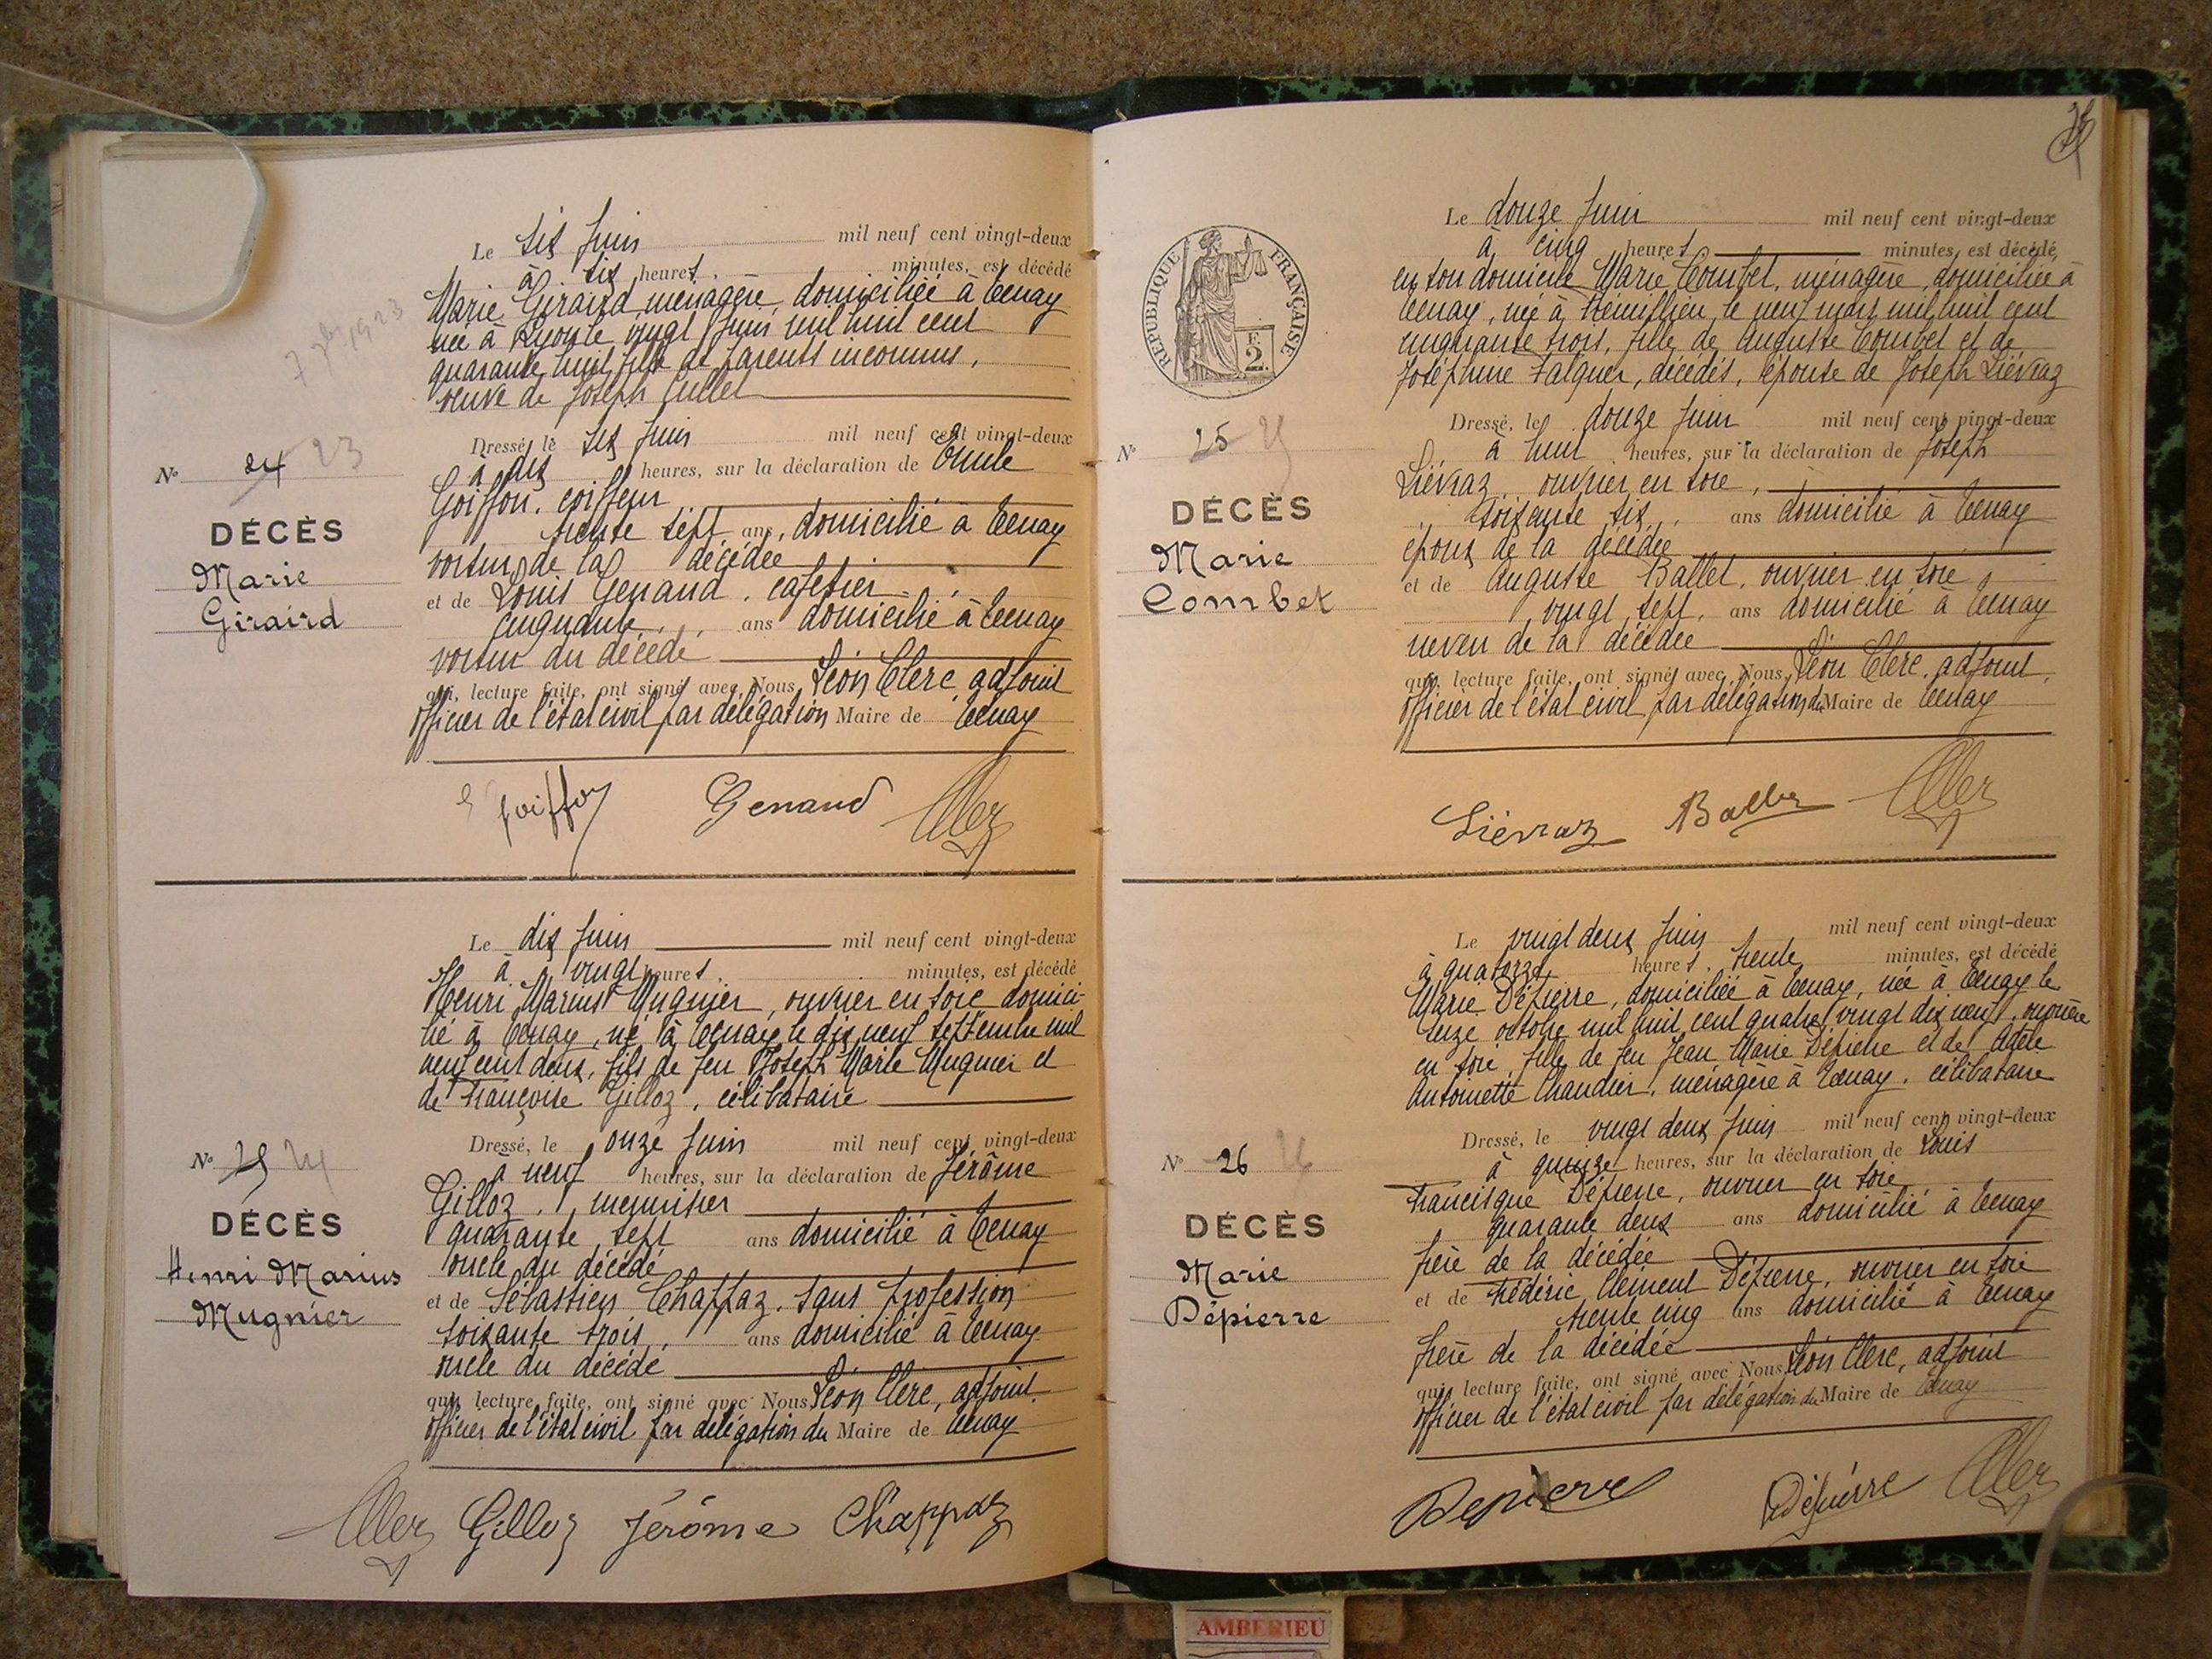 Le six Juin mil neuf cent vingt-deux
à six heures, minutes, est décédé
Marie Giraird, ménagère, domiciliée à Tenay
née à Lyon le vingt Juin mil huit cent
quarante huit, fille de parents inconnus,
veuve de Joseph Cullet
Dressé, le six Juin mil neuf cent vingt-deux
à dix heures, sur la déclaration de Emile
Goiffon, coiffeur
trente sept ans, domicilié à Tenay
voisin de la décédée
et de Louis Genaud, cafetier
cinquante ans domicilié à Tenay
voisin du décédé
qui, lecture faite, ont signé avec Nous, Léon Clerc, adjoint
officier de l'état civil par délégation Maire de Tenay
7 1923
N° 24 23
DÉCÈS
Marie
Giraird
Goiffon Genaud Clerc
Le dix Juin mil neuf cent vingt-deux
à vingt heures, minutes, est décédé
Henri Marius Mugnier, ouvrier en soie domici-
lié à Tenay, né à Tenay le dix neuf septembre mil
neuf cent deux, fils de feu Joseph Marie Mugnier et
de Françoise Gilloz, célibataire
Dressé, le onze Juin mil neuf cent vingt-deux
à neuf heures, sur la déclaration de Jérôme
Gilloz, menuisier
quarante sept ans domicilié à Tenay
oncle du décédé
et de Sébastien Chappaz, sans profession
soixante trois, ans domicilié à Tenay
oncle du décédé
qui, lecture faite, ont signé avec Nous, Léon Clerc, adjoint
officier de l'état civil par délégation du Maire de Tenay
N° 25 24
DÉCÈS
Henri Marius
Mugnier
Clerc Gilloz Jérôme Chappaz
RÉPUBLIQUE FRANÇAISE
2
Le douze Juin mil neuf cent vingt-deux
à cinq heures minutes, est décédé,
en son domicile Marie Combet, ménagère, domiciliée à
Tenay, née à Prémillieu le neuf mars mil huit cent
cinquante trois, fille de Auguste Combet et de
Joséphine Falquer, décédés, épouse de Joseph Liévraz
Dressé, le douze Juin mil neuf cent vingt-deux
à huit heures, sur la déclaration de Joseph
Liévraz ouvrier en soie,
soixante six, ans domicilié à Tenay
époux de la décédée
et de Auguste Ballet, ouvrier en soie,
vingt sept, ans domicilié à Tenay
neveu de la décédée
qui, lecture faite, ont signé avec Nous, Léon Clerc, adjoint,
officier de l'état civil par délégation du Maire de Tenay
N° 25
DÉCÈS
Marie
Combet
Liévraz Ballet Clerc
Le vingt deux Juin mil neuf cent vingt-deux
à quatorze heures trente minutes, est décédé
Marie Dépierre, domiciliée à Tenay, née à Tenay le
onze octobre mil huit cent quatre vingt dix neuf, ouvrière
en soie, fille de feu Jean Marie Dépierre et de Adèle
Antoinette Chaudier, ménagère à Tenay, célibataire
Dressé, le vingt deux Juin mil neuf cent vingt-deux
à quinze heures, sur la déclaration de Louis
Francisque Dépierre, ouvrier en soie
quarante deux ans domicilié à Tenay
frère de la décédée
et de Frédéric Clément Dépierre, ouvrier en soie
trente cinq ans domicilié à Tenay
frère de la décédée
qui, lecture faite, ont signé avec Nous, Léon Clerc, adjoint
officier de l'état civil par délégation du Maire de Tenay
N° 26 26
DÉCÈS
Marie
Dépierre
Depierre Dépierre Clerc
AMBERIEU